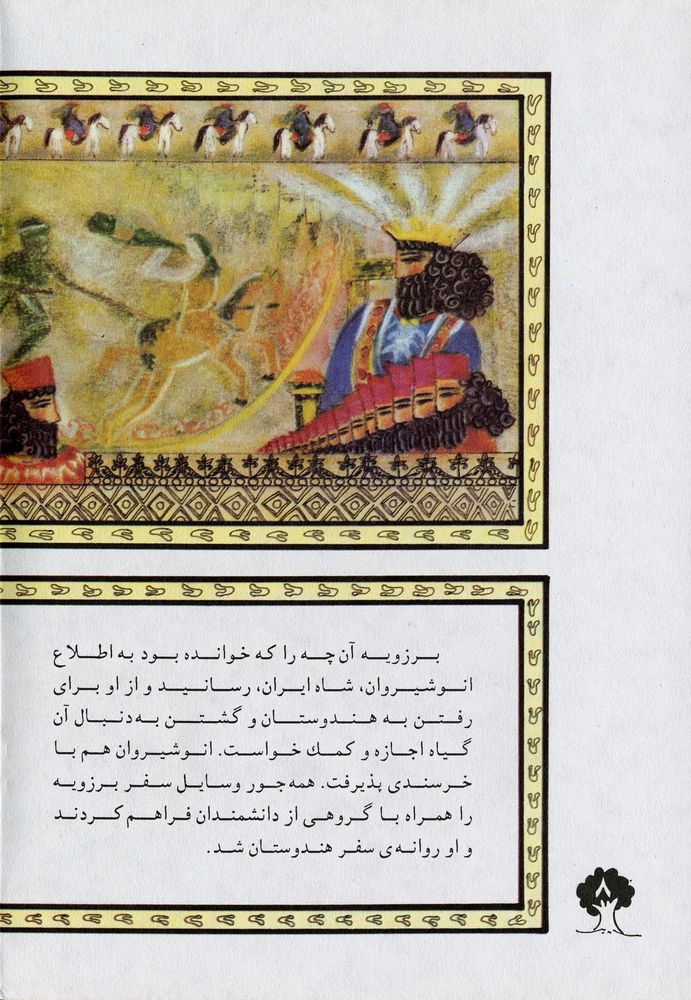 برزویه آن‌چه را که خوانده بود به اطلاع
انوشیروان، شاه ایران، رسانید و از او برای
رفتن به هندوستان و گشتن به‌دنبال آن
گیاه اجازه و کمك خواست. انوشیروان هم با
خرسندی پذیرفت. همه‌جور وسایل سفر برزویه
را همراه با گروهی از دانشمندان فراهم کردند
و او روانه‌ی سفر هندوستان شد.
۸